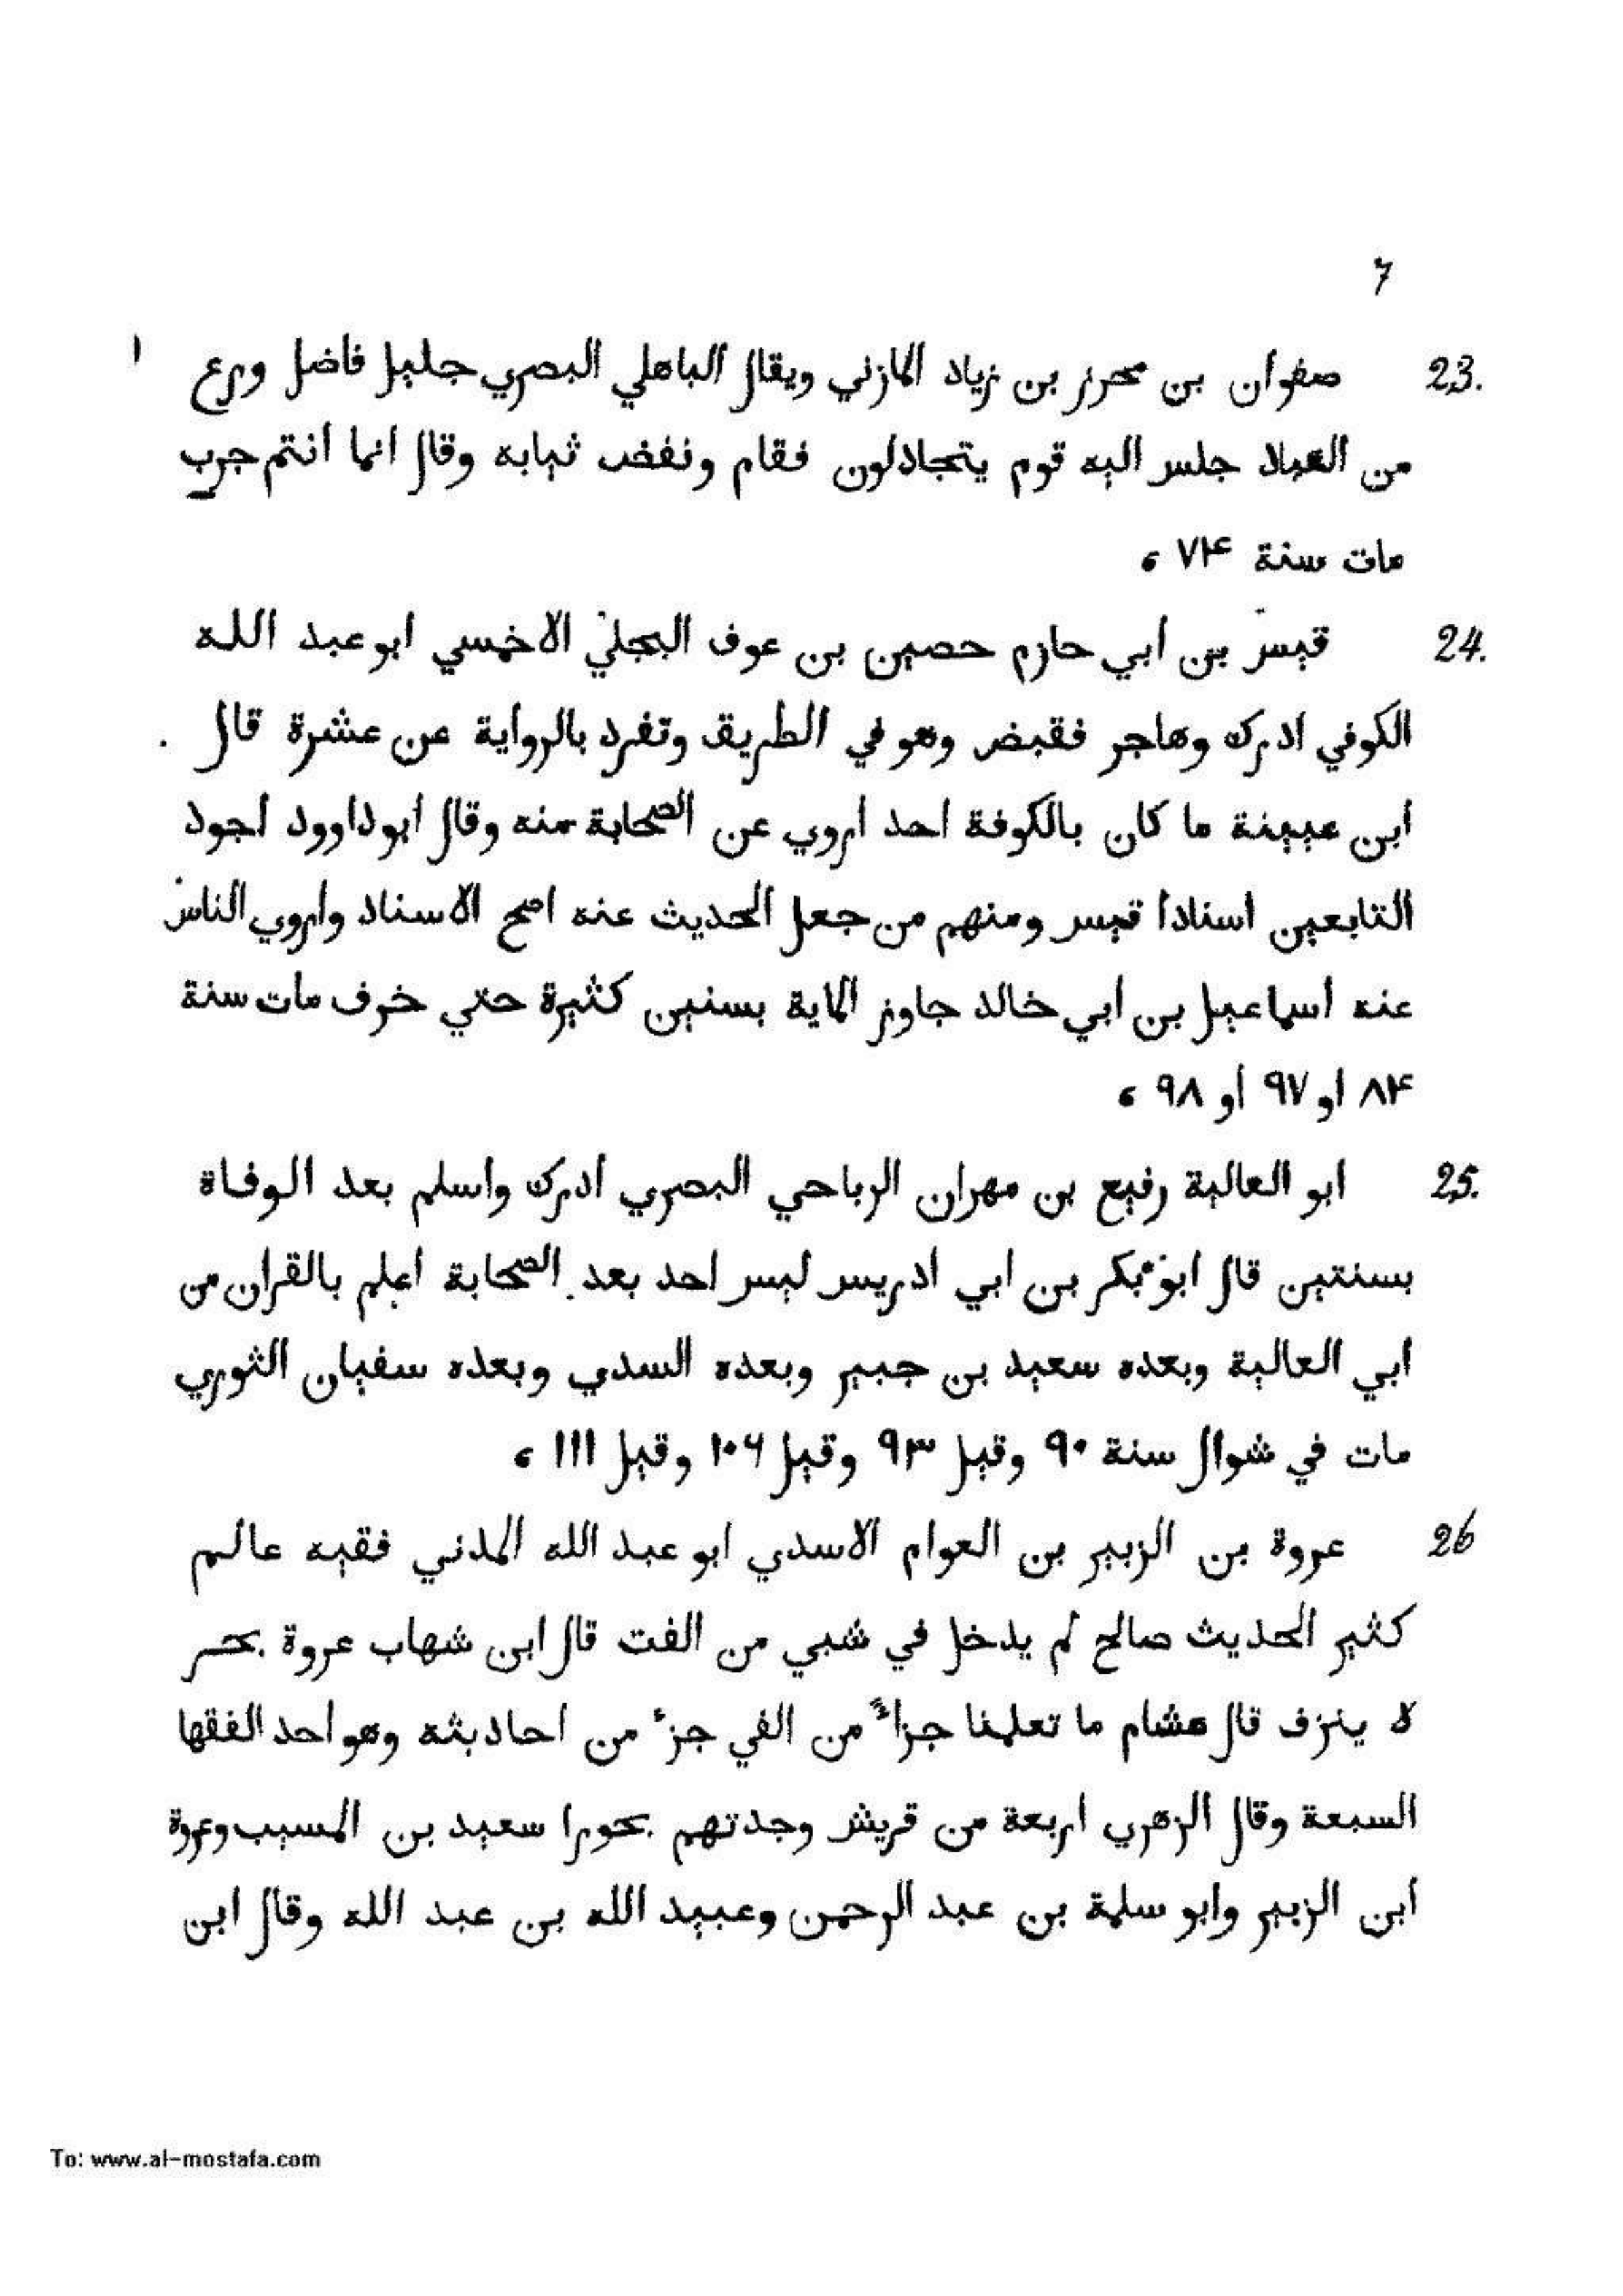 7
23. صفوان بن محرز بن زياد المازني ويقال الباهلي البصري جليل فاضل ورع
من العباد جلس اليه قوم يتجادلون فقام ونفض ثيابه وقال انما انتم جرب
مات سنة ۷۴ ،
24. قيس بن أبي حازم حصين بن عوف البجلي الاخمسي ابو عبد الله
الكوفي ادرك وهاجر فقبض وهو في الطريق وتفرد بالرواية عن عشرة قال
ابن عيينة ما كان بالكوفة احد اروي عن الصحابة منه وقال ابو داوود اجود
التابعين اسنادا قيس ومنهم من جعل الحديث عنه اصح الاسناد واروي الناس
عنه اسماعيل بن أبي خالد جاوز الماية بسنين كثيرة حتي خرف مات سنة
۸۴ او ۹۷ أو ۹۸ ،
25. ابو العالية رفيع بن مهران الرياحي البصري أدرك واسلم بعد الوفاة
بسنتين قال ابو بكر بن ابي ادريس ليس احد بعد الصحابة اعلم بالقران من
ابي العالية وبعده سعيد بن جبير وبعده السدي وبعده سفيان الثوري
مات في شوال سنة ۹۰ وقيل ۹۳ وقيل ۱۰۶ وقيل ۱۱۱ ،
26 عروة بن الزبير بن العوام الاسدي ابو عبد الله المدني فقيه عالم
كثير الحديث صالح لم يدخل في شيي من الفت قال ابن شهاب عروة بحر
لا ينزف قال هشام ما تعلمنا جزاء من الفي جزء من احاديثه وهو احد الفقها
السبعة وقال الزهري اربعة من قريش وجدتهم بحورا سعيد بن المسيب وعروة
ابن الزبير وابو سلمة بن عبد الرحمن وعبيد الله بن عبد الله وقال ابن
To: www.al-mostafa.com